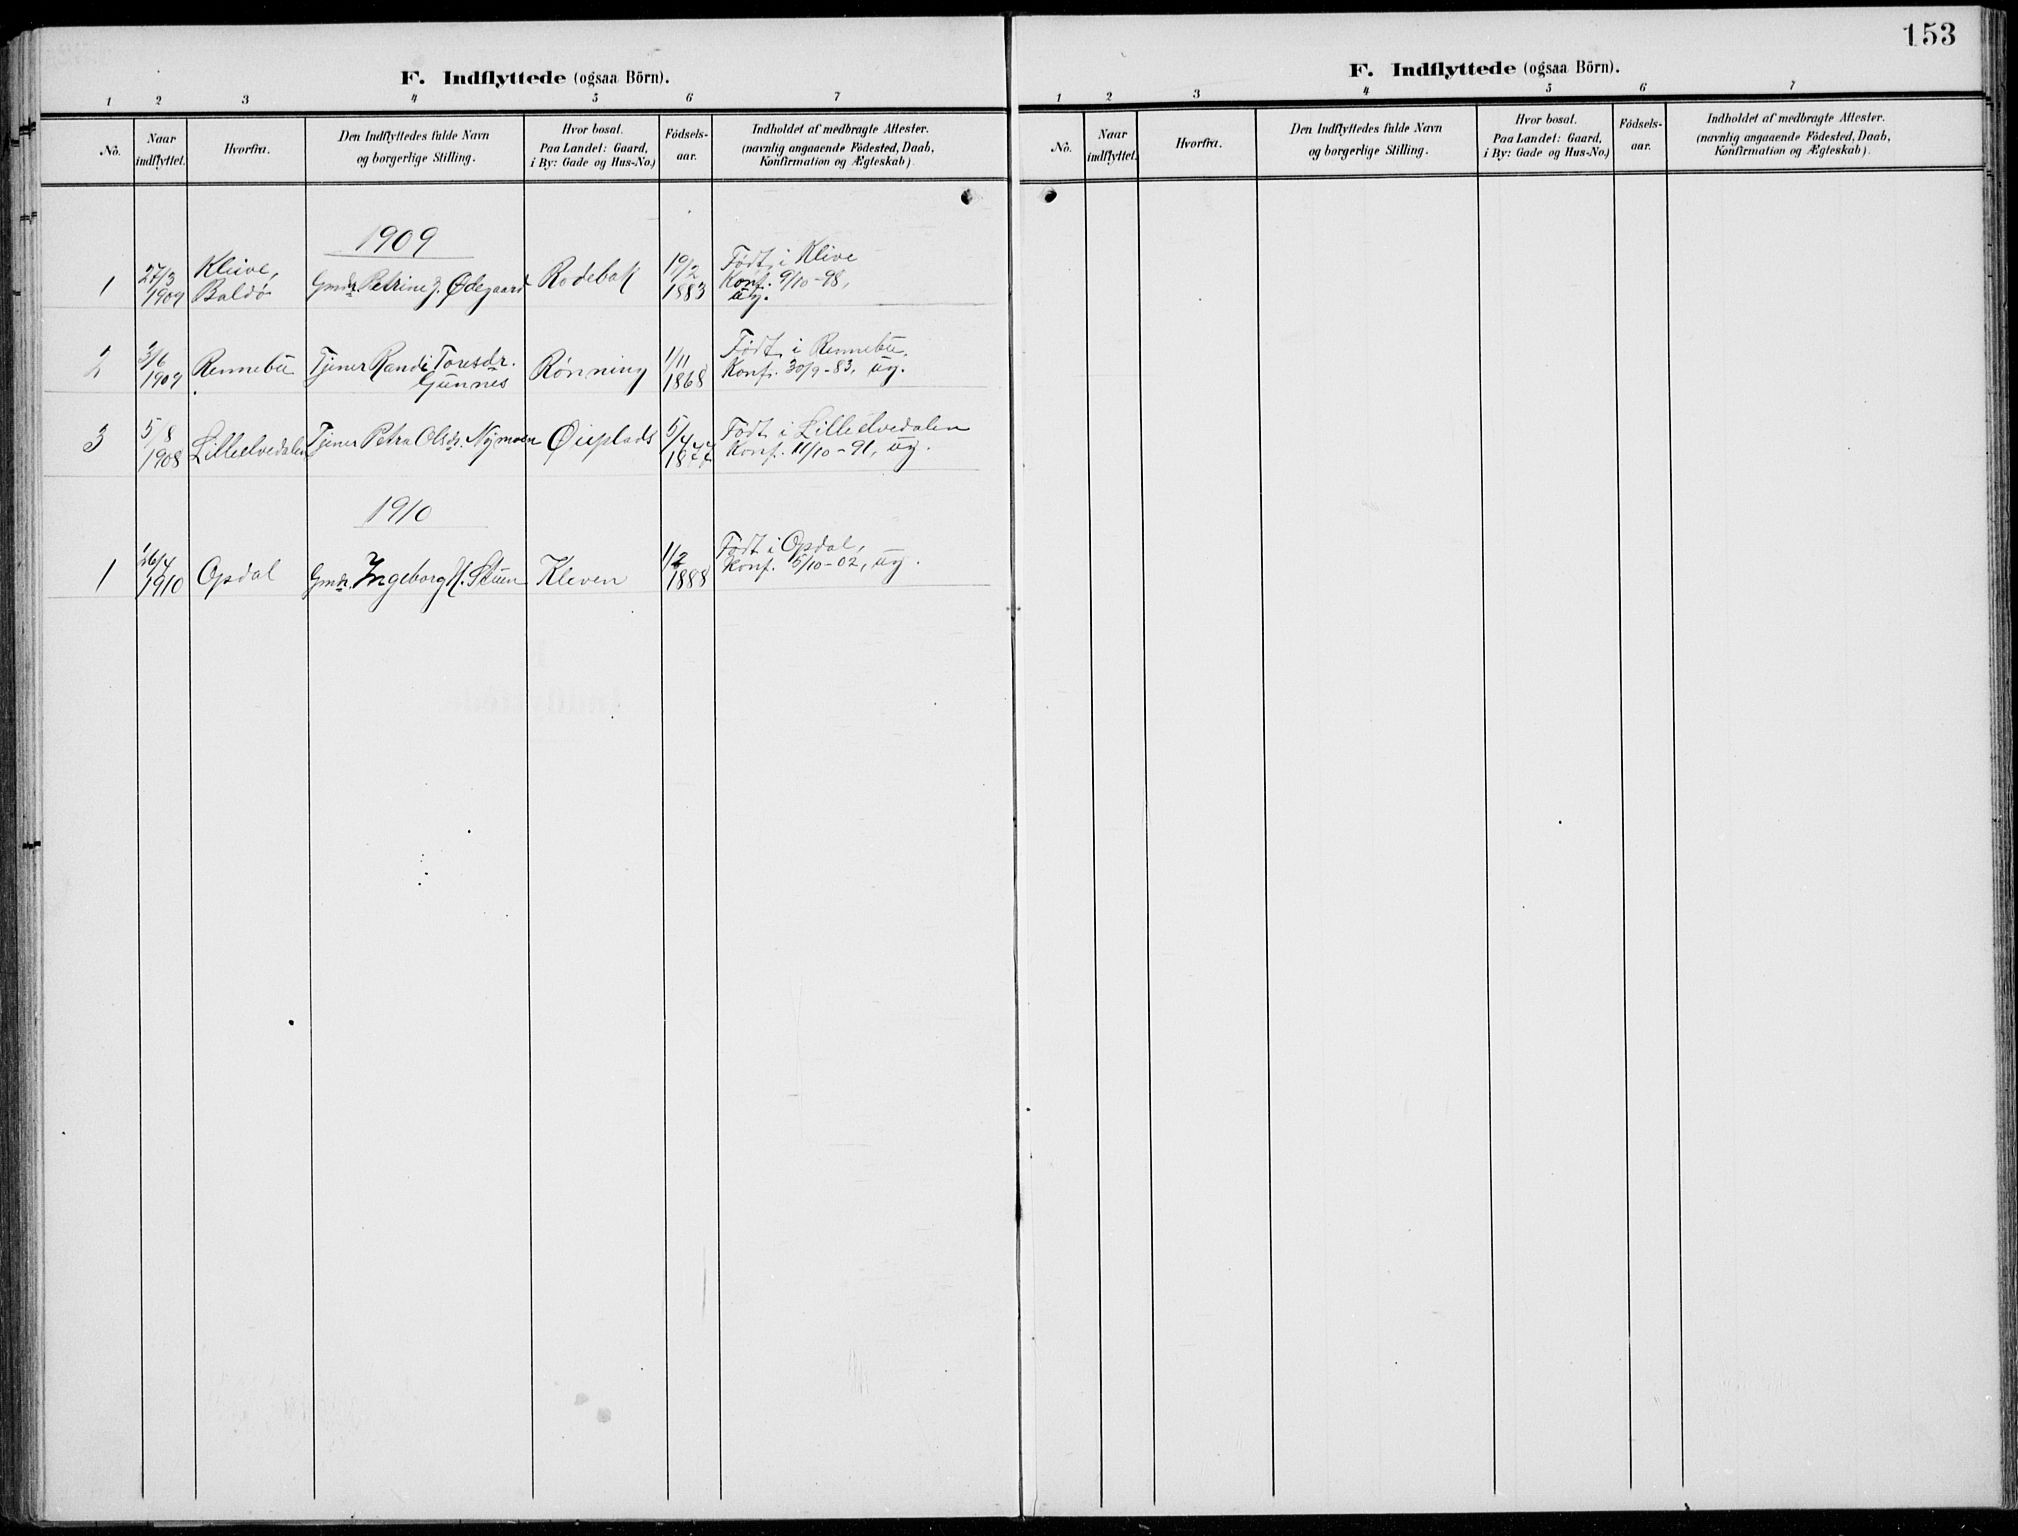 F. Indflyttede (ogsaa Börn).
1 2 3 4 5 6 7
No. Naar indflyttet. Hvorfra. Den Indflyttedes fulde Navn og borgerlige Stilling. Hvor bosat. Paa Landet: Gaard, i By: Gade og Hus-No.) Födsels-aar. Indholdet af medbragte Attester. (navnlig angaaende Födested, Daab, Konfirmation og Ægteskab).
1909
1 27/3 1909 Kleive, Boldö Gmdr. Petrine J. Ødegaard Rodebak 19/2 1883 Födt i Klive
Konf. 9/10-98,
ug.
2 3/6 1909 Rennebu Tjener Randi Toresdr. Gunnes Rönning 1/11 1868 Födt i Rennebu,
Konf. 30/9-83, ug.
3 5/8 1908 Lilleelvedalen Tjener Petra Olsdr. Nymoen Øiplads 5/4 1877 Födt i Lilleelvedalen
Konf. 11/10-91, ug.
1910
1 26/4 1910 Opdal Gmdr. Ingeborg H. Stuen Kleven 1/2 1888 Födt i Opdal,
Konf. 5/10-02, ug.
153
F. Indflyttede (ogsaa Börn).
1 2 3 4 5 6 7
No. Naar indflyttet. Hvorfra. Den Indflyttedes fulde Navn og borgerlige Stilling. Hvor bosat. Paa Landet: Gaard, i By: Gade og Hus-No.) Födsels-aar. Indholdet af medbragte Attester. (navnlig angaaende Födested, Daab, Konfirmation og Ægteskab).